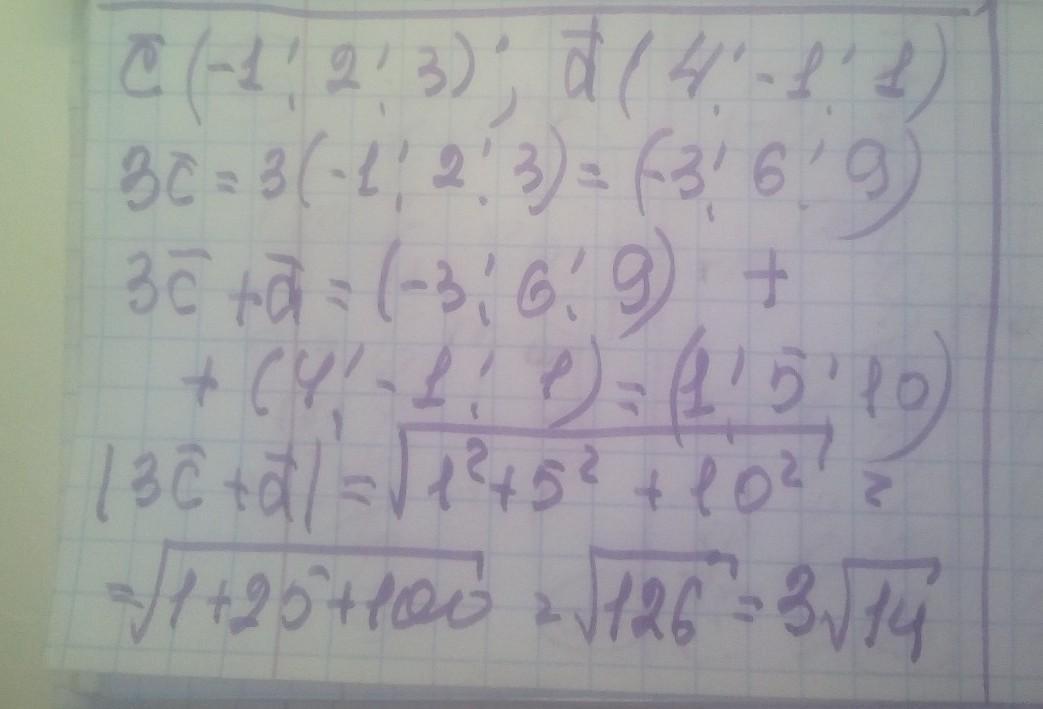 c̅ (-1; 2; 3); d̅ (4; -1; 1)
3c̅ = 3(-1; 2; 3) = (-3; 6; 9)
3c̅ + d̅ = (-3; 6; 9) +
+ (4; -1; 1) = (1; 5; 10)
|3c̅ + d̅| = √(1² + 5² + 10²) =
= √(1+25+100) = √126 = 3√14